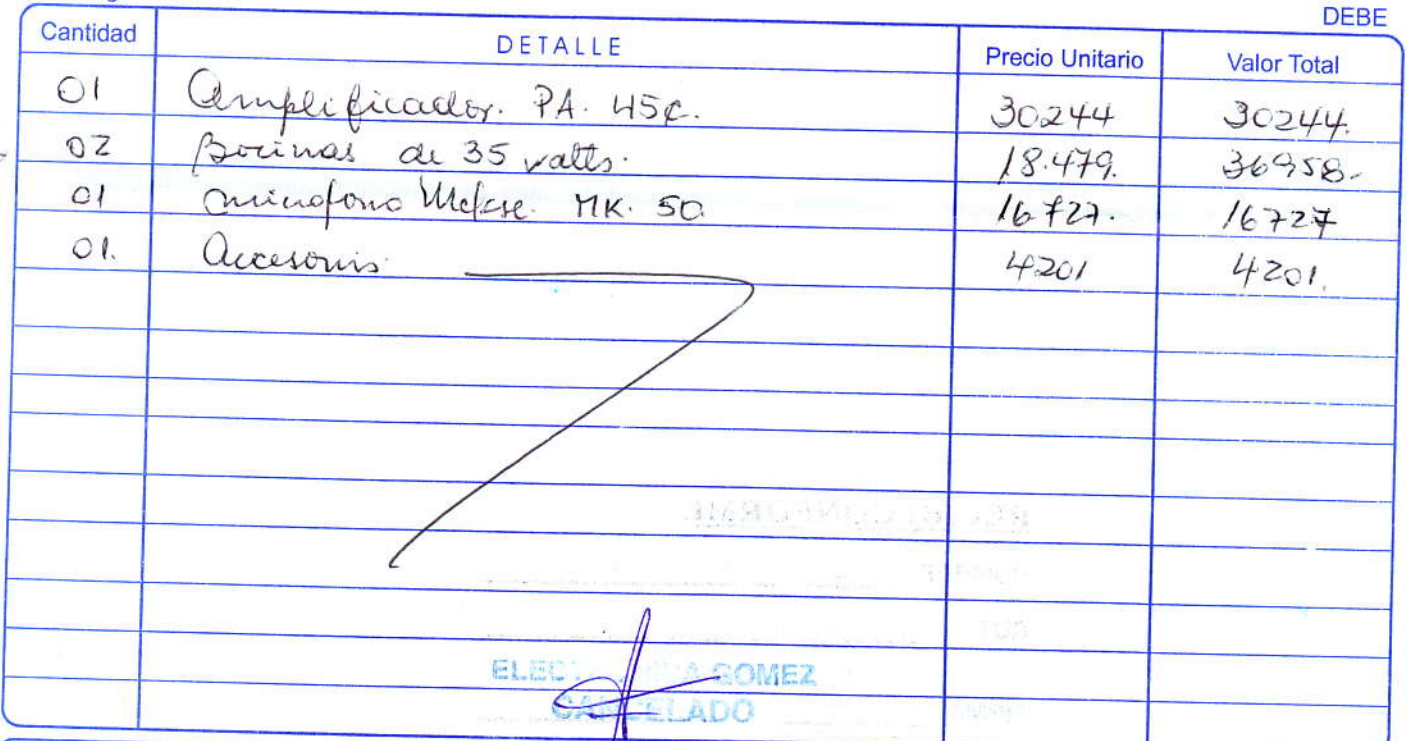 DEBE
Cantidad DETALLE Precio Unitario Valor Total
01 Amplificador. PA. 45c. 30244 30244.
02 Bocinas de 35 watts. 18.479. 36958.-
01 microfono MK. 50 16727. 16727
01. Accesorios 4201 4201.
GOMEZ
CANCELADO